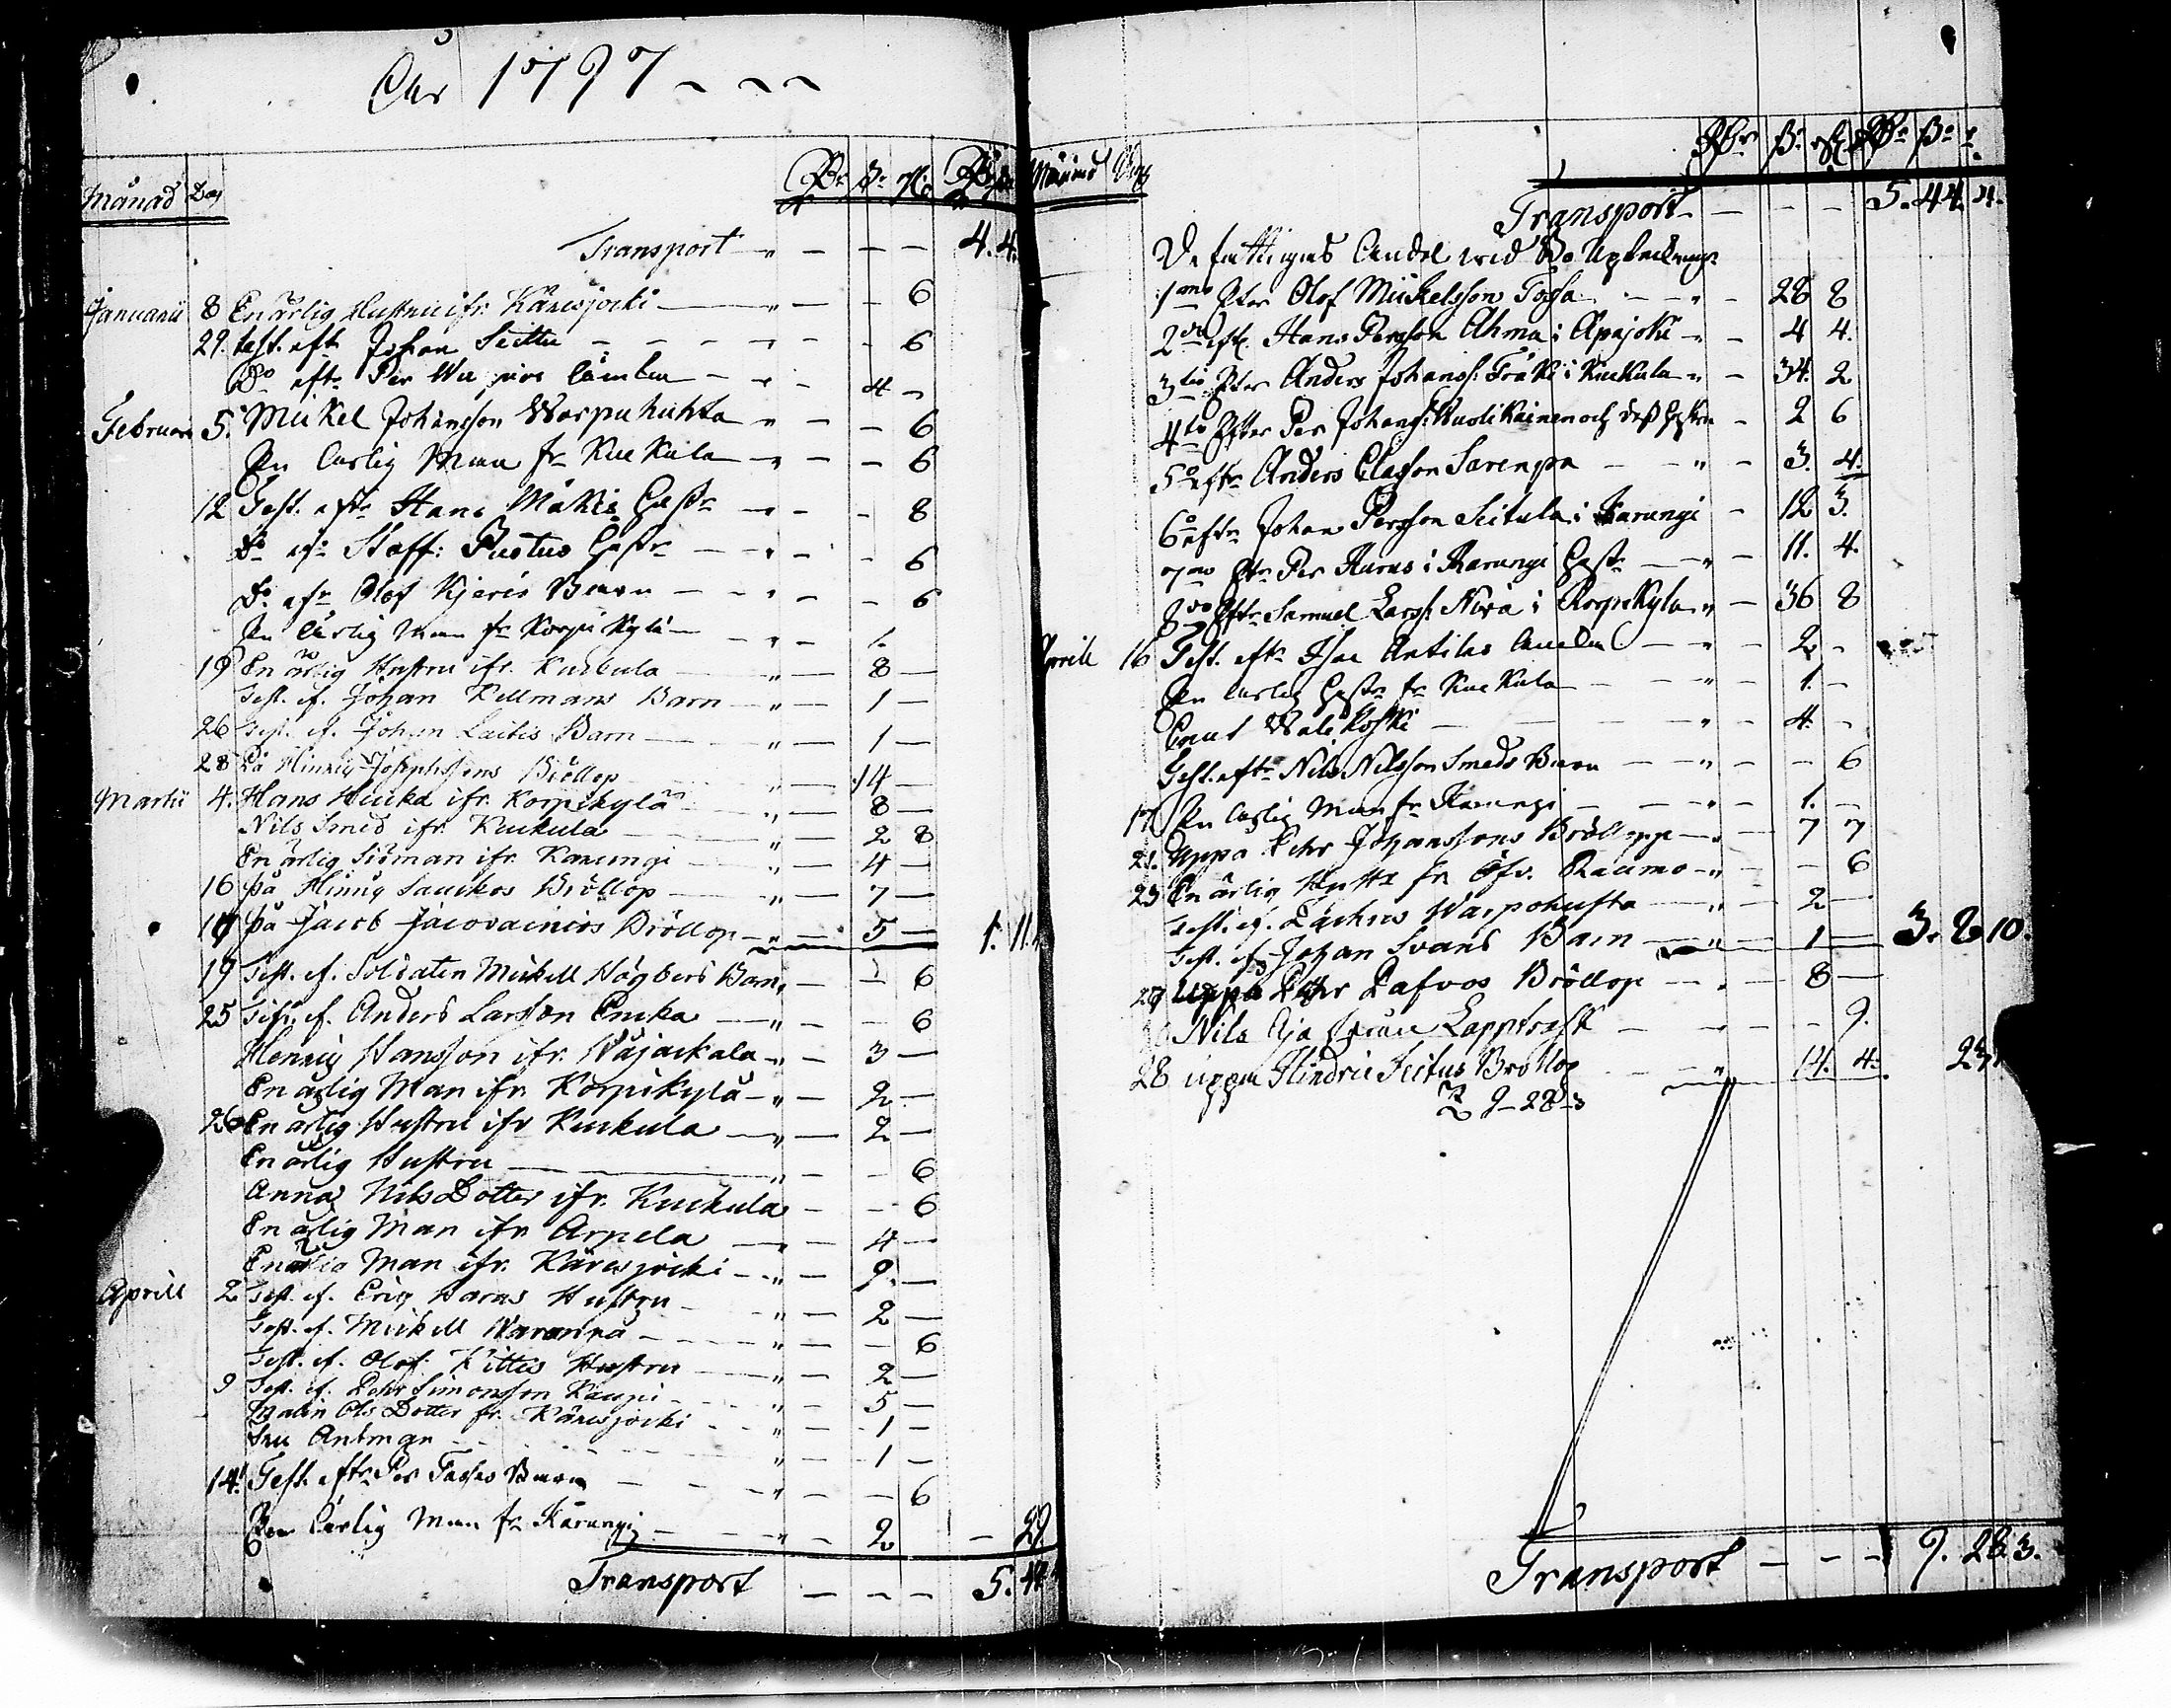 Åhr 1797
Månad Dag
Transport 4. 4.
Januarii 8 En ärlig Hustru ifr. Karesjocki 6
29. test. eft. Johan Seittu 6
Do eftr Per 4
Februarii 5. Mickel Johansson Warpuhuhta 6
En ärlig Man fr Kuckula 6
12 Test. eftr Hans Mäkis Hustr 8
Do eftr Staff: Hustr 6
Do eftr Olof Kjeris Barn 6
En ärlig Man fr Korpikylä 1.
19 En ärlig Hustru ifr. Kuckula 8
Test. ef. Johan Kellmans Barn 1
26 Test. ef. Johan Laitis Barn 1
28 På Hinriq Josephssons Bröllop 14
Martii 4. Hans Hucka ifr. Korpikylä 8
Nils Smed ifr. Kuckula 2 8
En ärlig Siöman ifr. Karungi 4
16 På Hinriq Sauckos Bröllop 7
17 På Jacob Jacovainios Bröllop 5 1. 11.
19 Test. ef. Soldaten Mickell Högbers Barn 6
25 Test. ef. Anders Larsson Encka 6
Henriq Hansson ifr. Wäjackala 3
En ärlig Man ifr. Korpikylä 2
26 En ärlig Hustru ifr Kuckula 2
En ärlig Hustru 6
Anna Nils Dotter ifr. Kuckula 6
En ärlig Man ifr Arpela 4
En ärlig Man ifr. Karesjocki 9.
Aprill 2 Test. ef. Eriq Harus Hustru 2
Test. ef. Mickell Waranpä 6
Test. ef. Olof Kittis Hustru 2
9 Test. ef. Pehr Simonsson Kaupi 5
Malin Ols Dotter fr. Karesjocki 1
Fru Antman 1
14. Test. eftr Per Tassas Barn 6
En ärlig Man fr Karungi 2 29.
Transport 5. 44
Månad Dag
Transport 5. 44. 4.
De fattigas Andel wid Bo Upteckningr
1mo Efter Olof Mickelsson Tossa 28 8
2do eft. Hans Persson Ahma i Apajoki 4 4.
3tio Efter Anders Johanss: Fräki i Kuckula 34. 2
4to Efter Per Johanss: Kuolikainen och dess Hustru 2 6
5o eftr Anders Classon Sarenpä 3. 4.
6o eftr Johan Persson Seitula i Karungi 12 3.
7mo Eftr Per Harus i Karungi Hustr 11. 4.
8vo Eftr Samuel Larss: Niva i Korpikylä 36 8
Aprill 16 Test. eftr Isac Antilas 2
En ärlig Hustr fr Kuckula 1.
Knut Walikoski 4.
Test. eftr Nils Nilsson Smeds Barn 6
17 En ärlig Man fr Karungi 1.
21. Uppå Pehr Johanssons Bröllopp 7 7
23 En ärlig Hustr fr Öfv. Raumo 6
Test. ef. Lackus Warpohufta 2
Test. ef. Johan Svans Barn 1 3. 2 10.
27 Uppå Pehr Pafvos Bröllop 8
Nils Lapptoft 9.
28 uppå Hindric Seitus Bröllop 14. 4. 23
9-28-3
Transport 9. 28. 3.